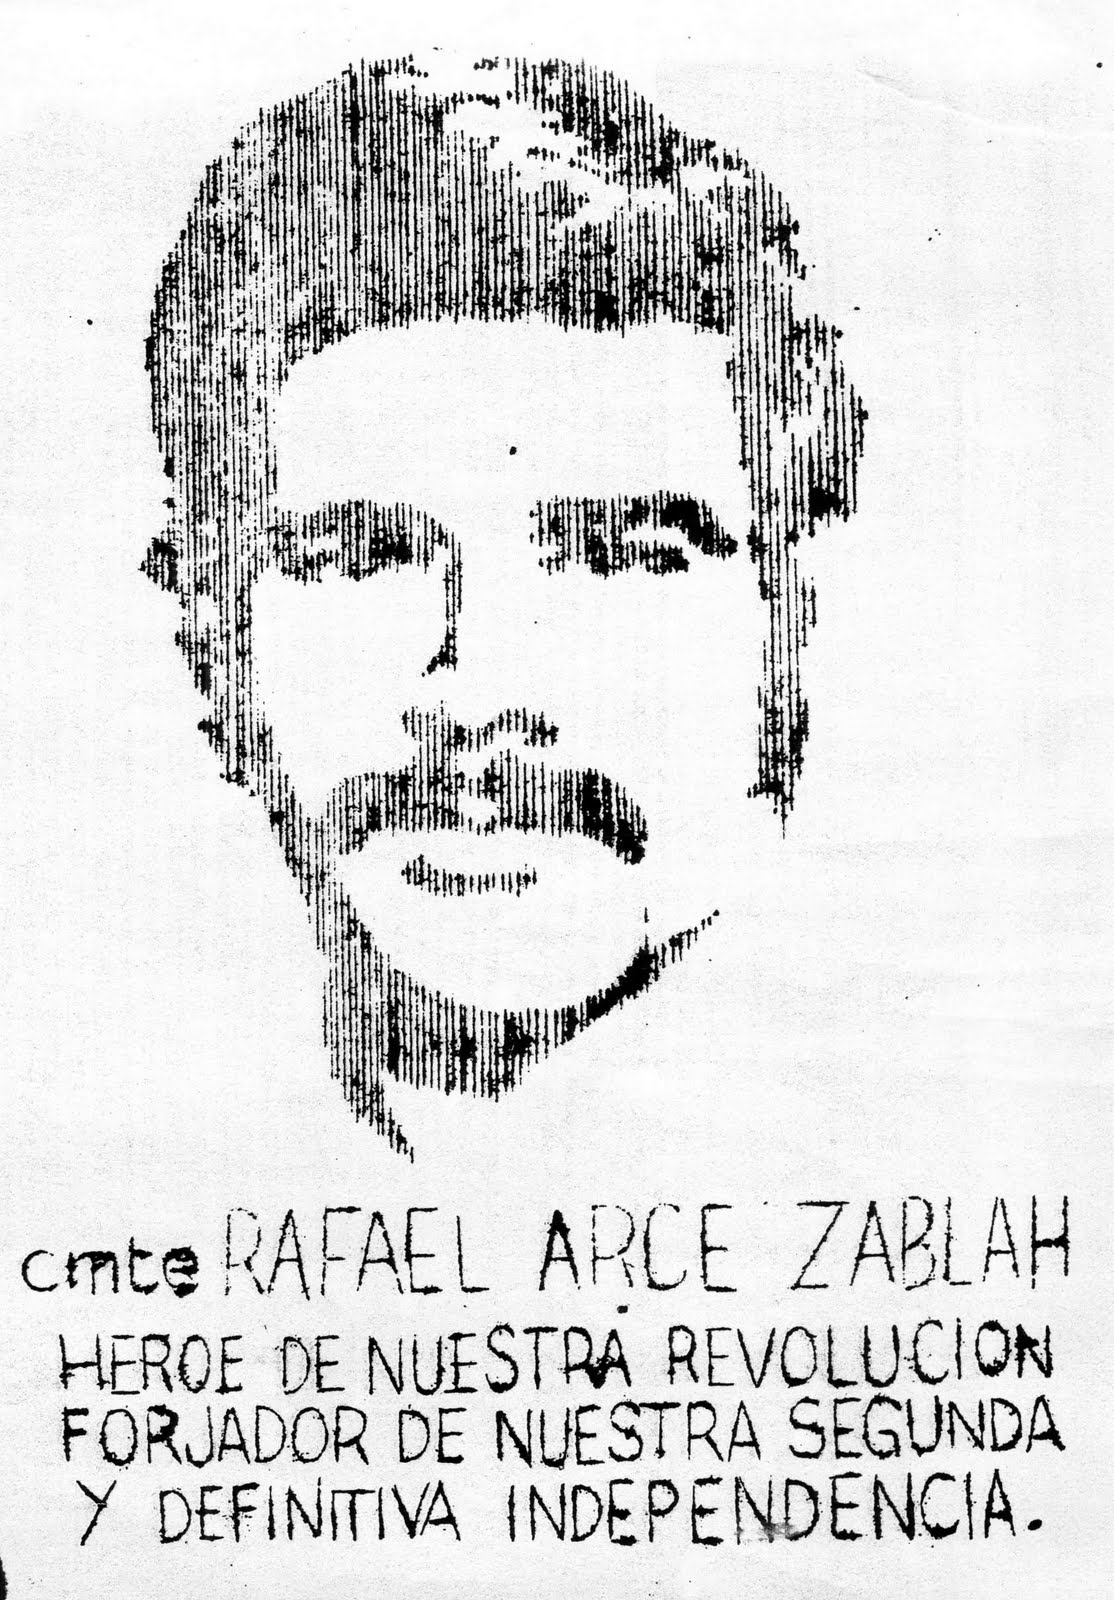 cmte RAFAEL ARCE ZABLAH
HEROE DE NUESTRA REVOLUCION
FORJADOR DE NUESTRA SEGUNDA
Y DEFINITIVA INDEPENDENCIA.